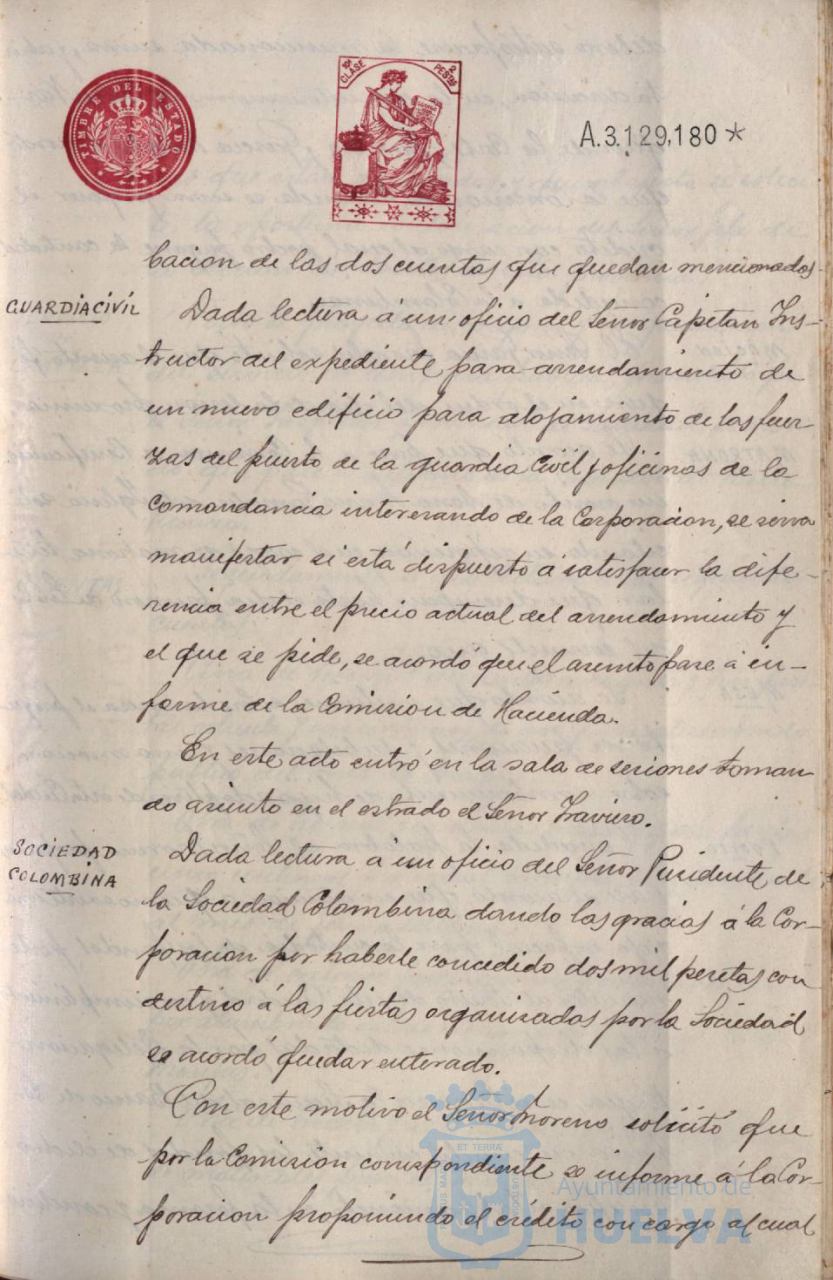 TIMBRE DEL ESTADO
10ª CLASE 2 PESETAS
A.3.129,180 *
bacion de las dos cuentas que quedan mencionadas.
GUARDIA CIVÍL
Dada lectura á un oficio del Señor Capitan Ins-
tructor del expediente para arrendamiento de
un nuevo edificio para alojamiento de las fuer-
zas del puerto de la guardia Civil y oficinas de la
Comandancia interesando de la Corporacion, se sirva
manifestar si está dispuesto á satisfacer la dife-
rencia entre el precio actual del arrendamiento y
el que se pide, se acordó que el asunto pase á in-
forme de la Comision de Hacienda.
En este acto entró en la sala de sesiones toman
do asiento en el estrado el Señor Travieso.
SOCIEDAD
COLOMBINA
Dada lectura á un oficio del Señor Presidente de
la Sociedad Colombina dando las gracias á la Cor-
poracion por haberle concedido dos mil pesetas con
destino á las fiestas organizadas por la Sociedad
se acordó quedar enterado.
Con este motivo el Señor Moreno solicitó que
por la Comision correspondiente se informe á la Cor-
poracion proponiendo el crédito con cargo al cual
Ayuntamiento de
HUELVA